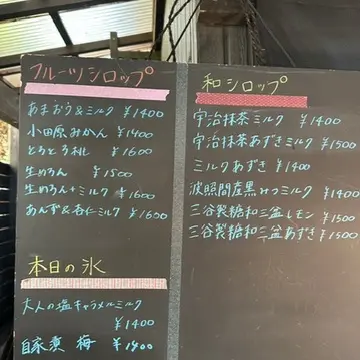 フルーツシロップ
あまおう&ミルク ¥1400
小田原みかん ¥1400
とろとろ桃 ¥1600
生めろん ¥1500
生めろん+ミルク ¥1600
あんず&杏仁ミルク ¥1600
本日の氷
大人の塩キャラメルミルク
¥1400
自家煮 梅 ¥1400
和シロップ
宇治抹茶ミルク ¥1400
宇治抹茶あずきミルク ¥1500
ミルクあずき ¥1400
波照間産黒みつミルク ¥1400
三谷製糖和三盆レモン ¥1500
三谷製糖和三盆あずき ¥1500